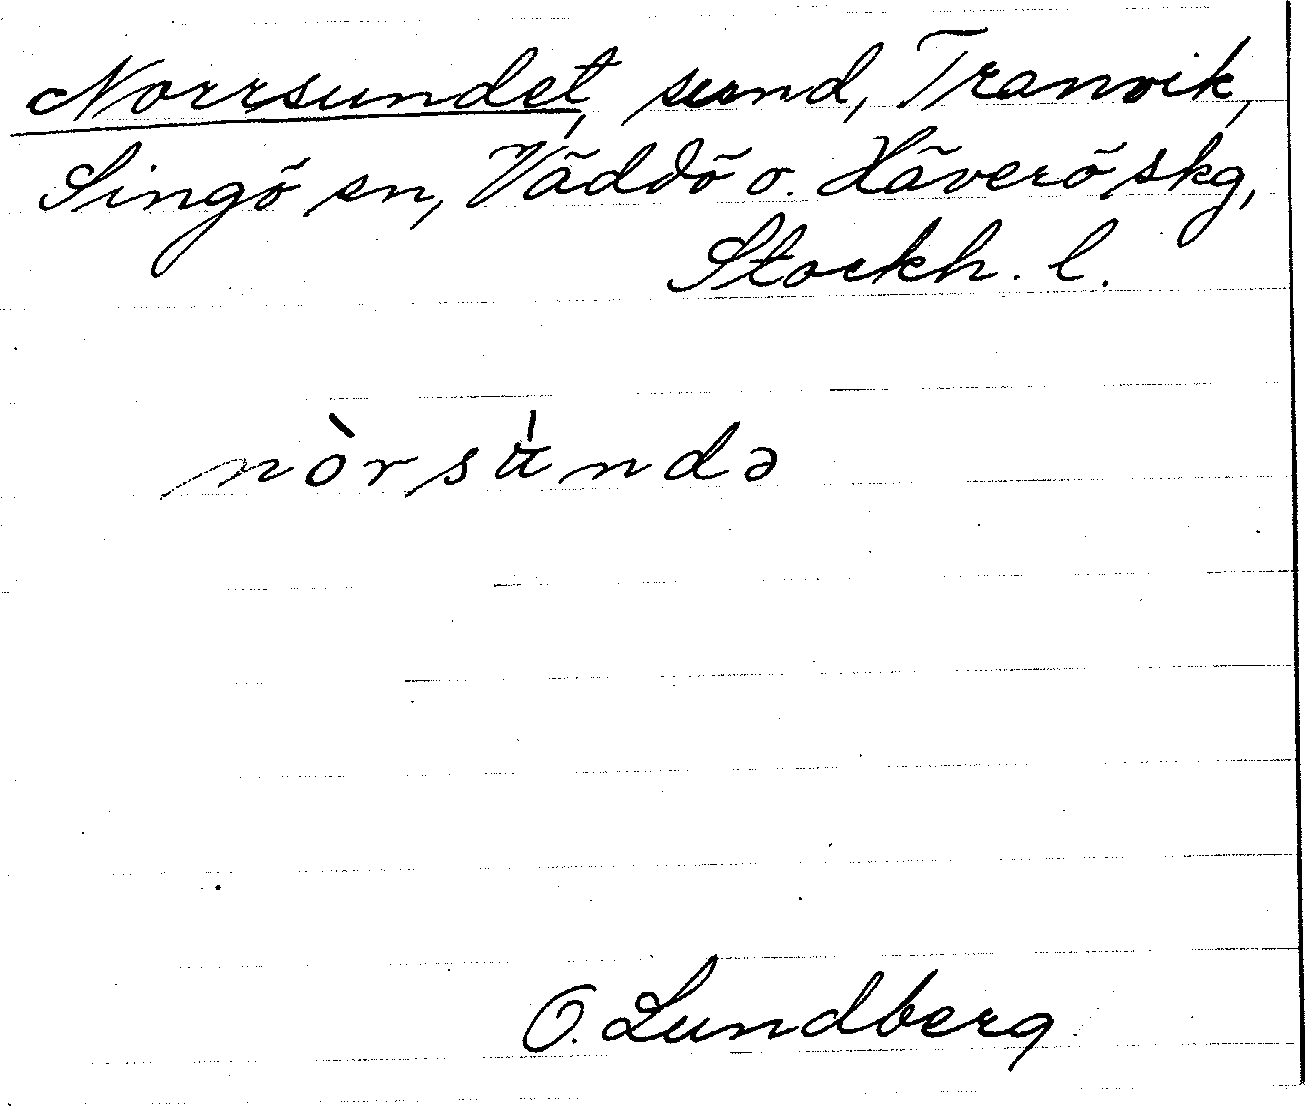 Norrsundet, sund, Tranvik,
Singö sn, Väddö o. Häverö skg,
Stockh. l.
nòrsu̍ndə
O. Lundberg